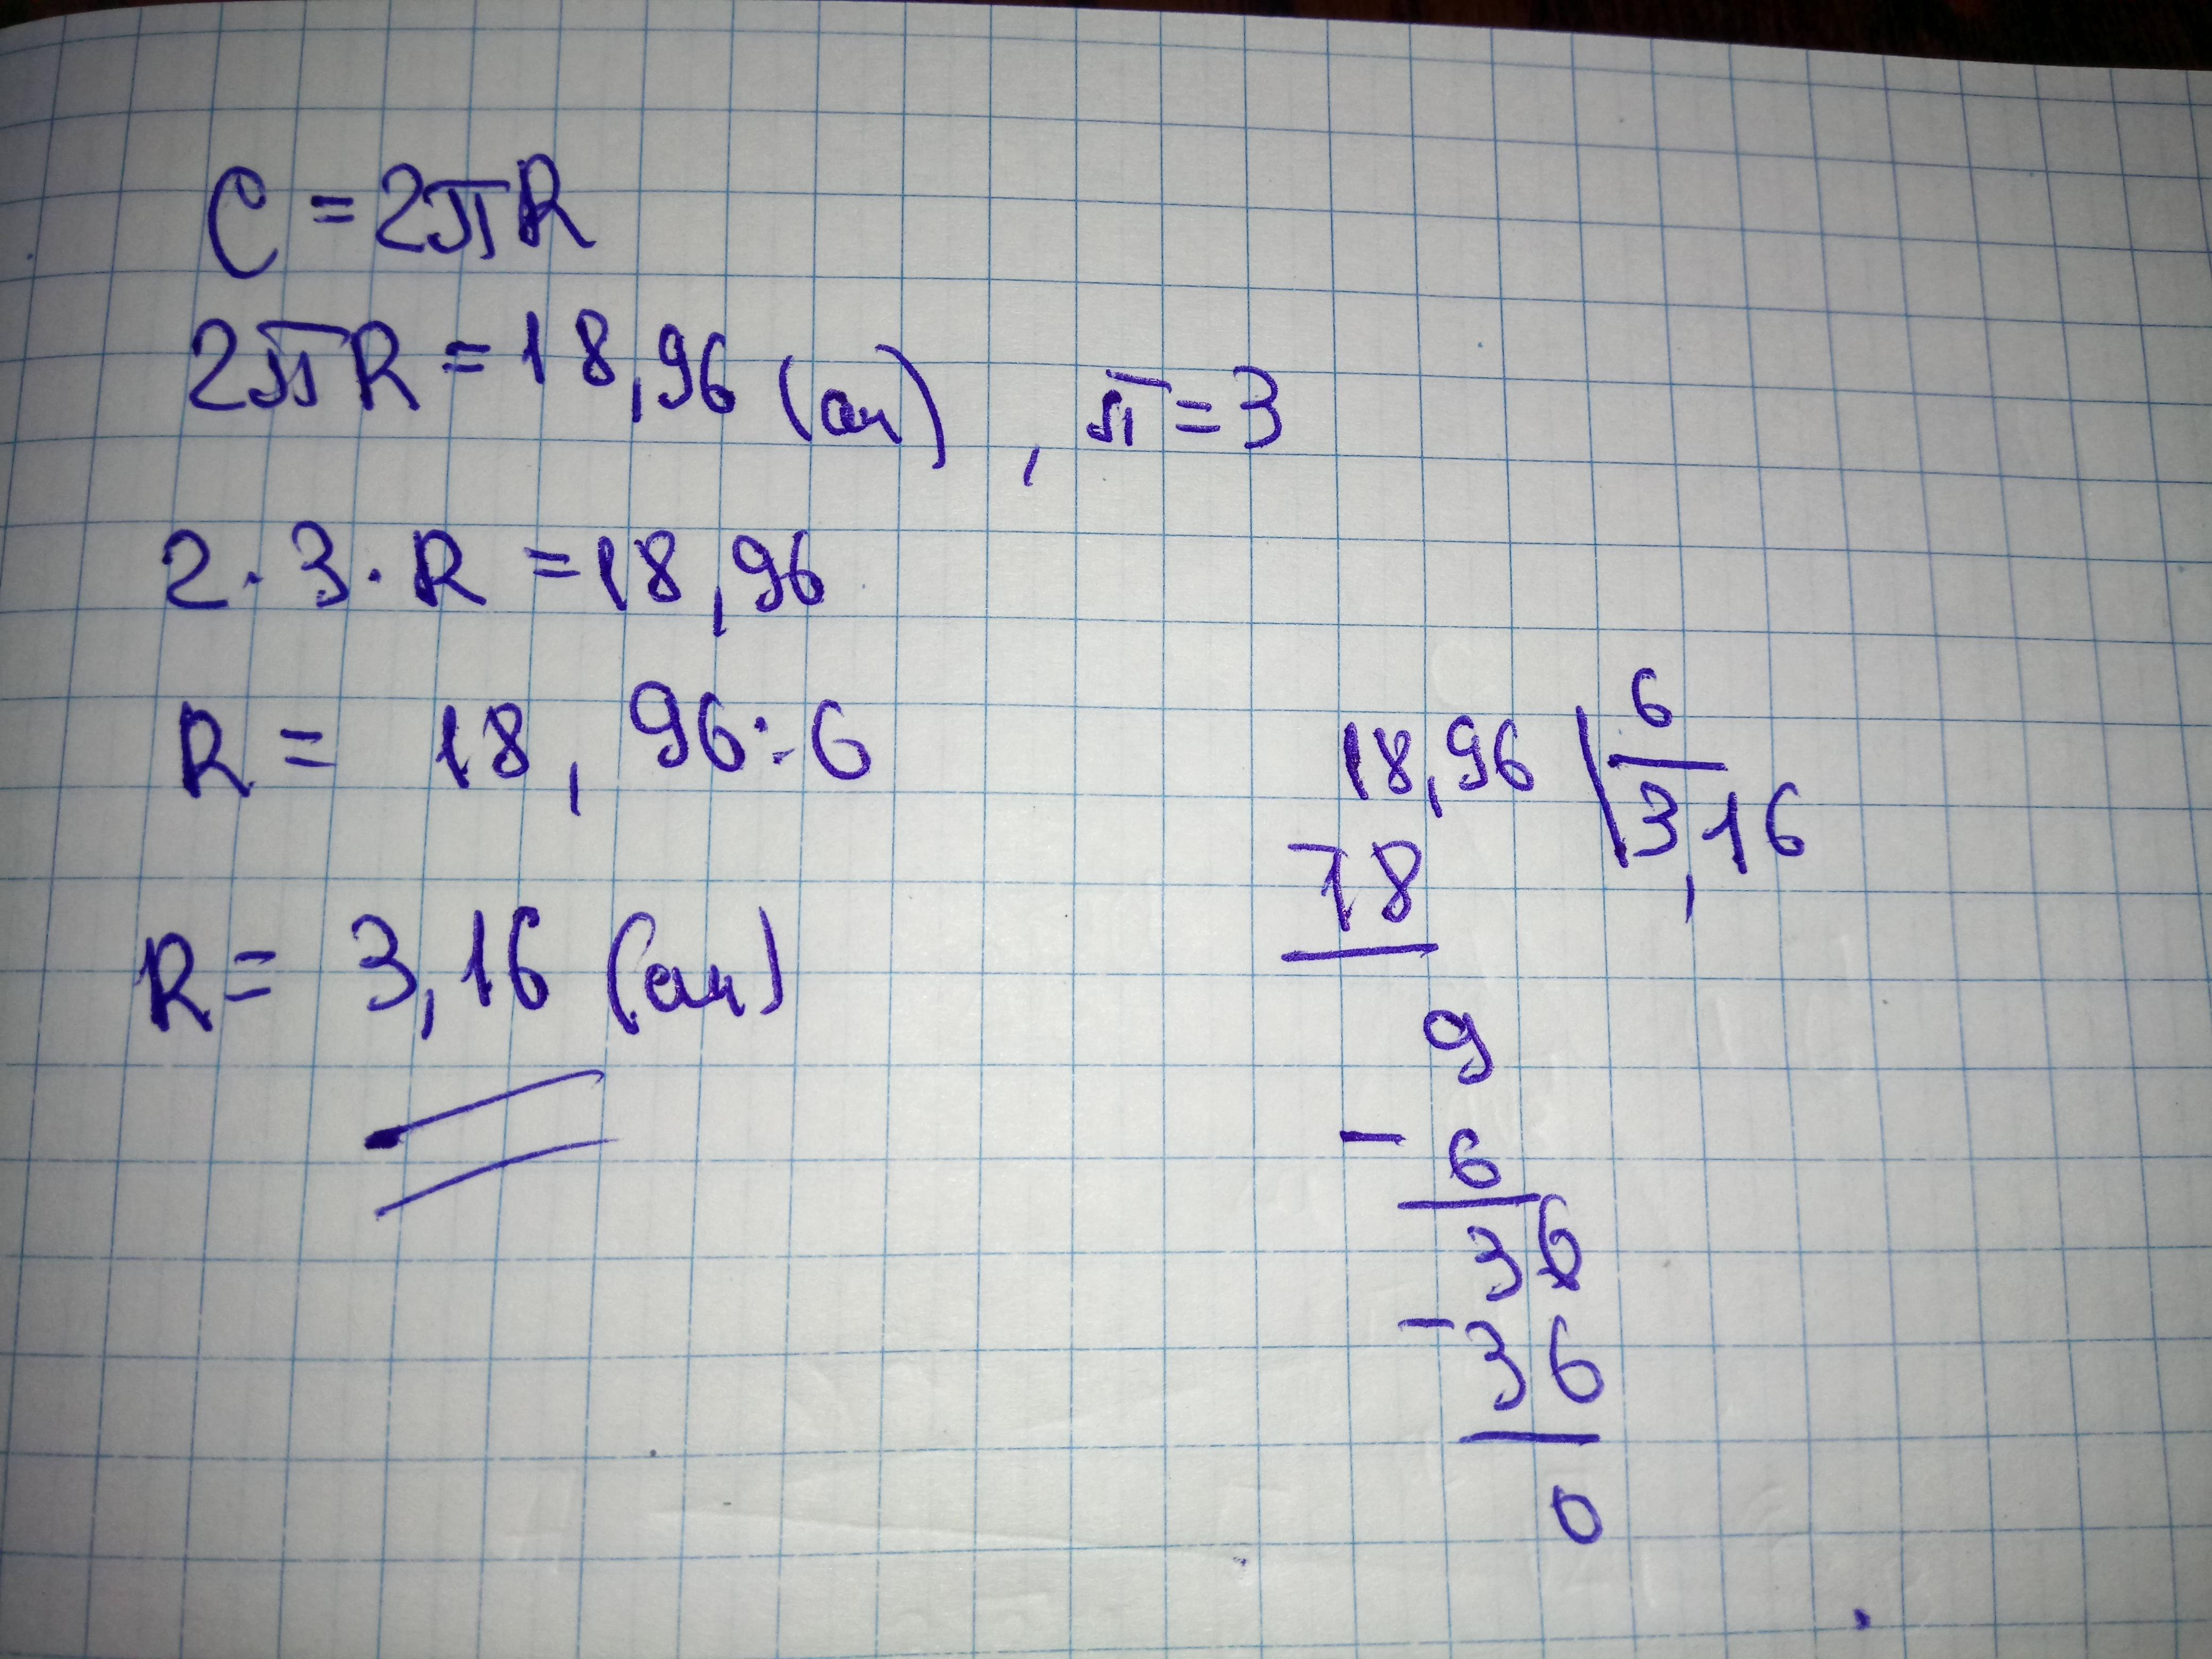 C = 2πR
2πR = 18,96 (см) , π = 3
2 · 3 · R = 18,96
R = 18, 96 : 6
R = 3,16 (см)
18,96 | 6
3,16
- 18
9
- 6
36
- 36
0